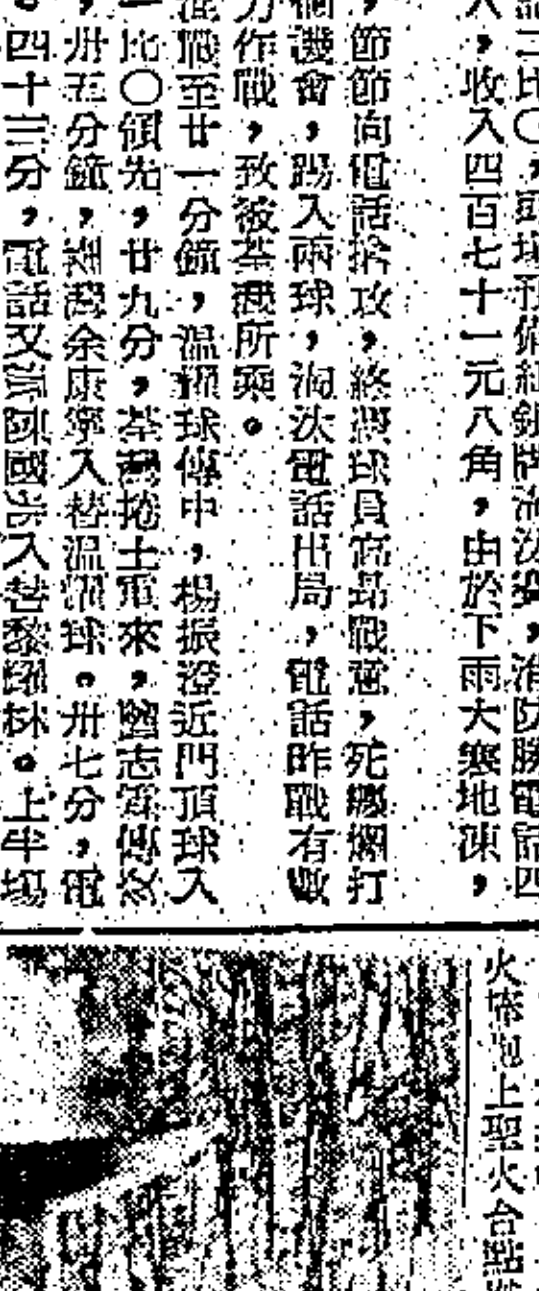 話二比〇，頭場預備組銀牌淘汰賽，消防勝電話四
入，收入四百七十一元八角，由於下雨大寒地凍，
，節節向電話搶攻，終憑球員高昂戰意，死纏爛打
個機會，踢入兩球，淘汰電話出局，電話昨戰有數
力作戰，致被荃灣所乘。
混戰至廿一分鐘，溫耀球傳中，楊振澄近門頂球入
一比〇領先，廿九分，荃灣捲土重來，
，卅五分鐘，荃灣余康寧入替溫耀球。卅七分，電
。四十三分，電話又派陳國 入替黎耀林。上半場
火 炮上聖火台點